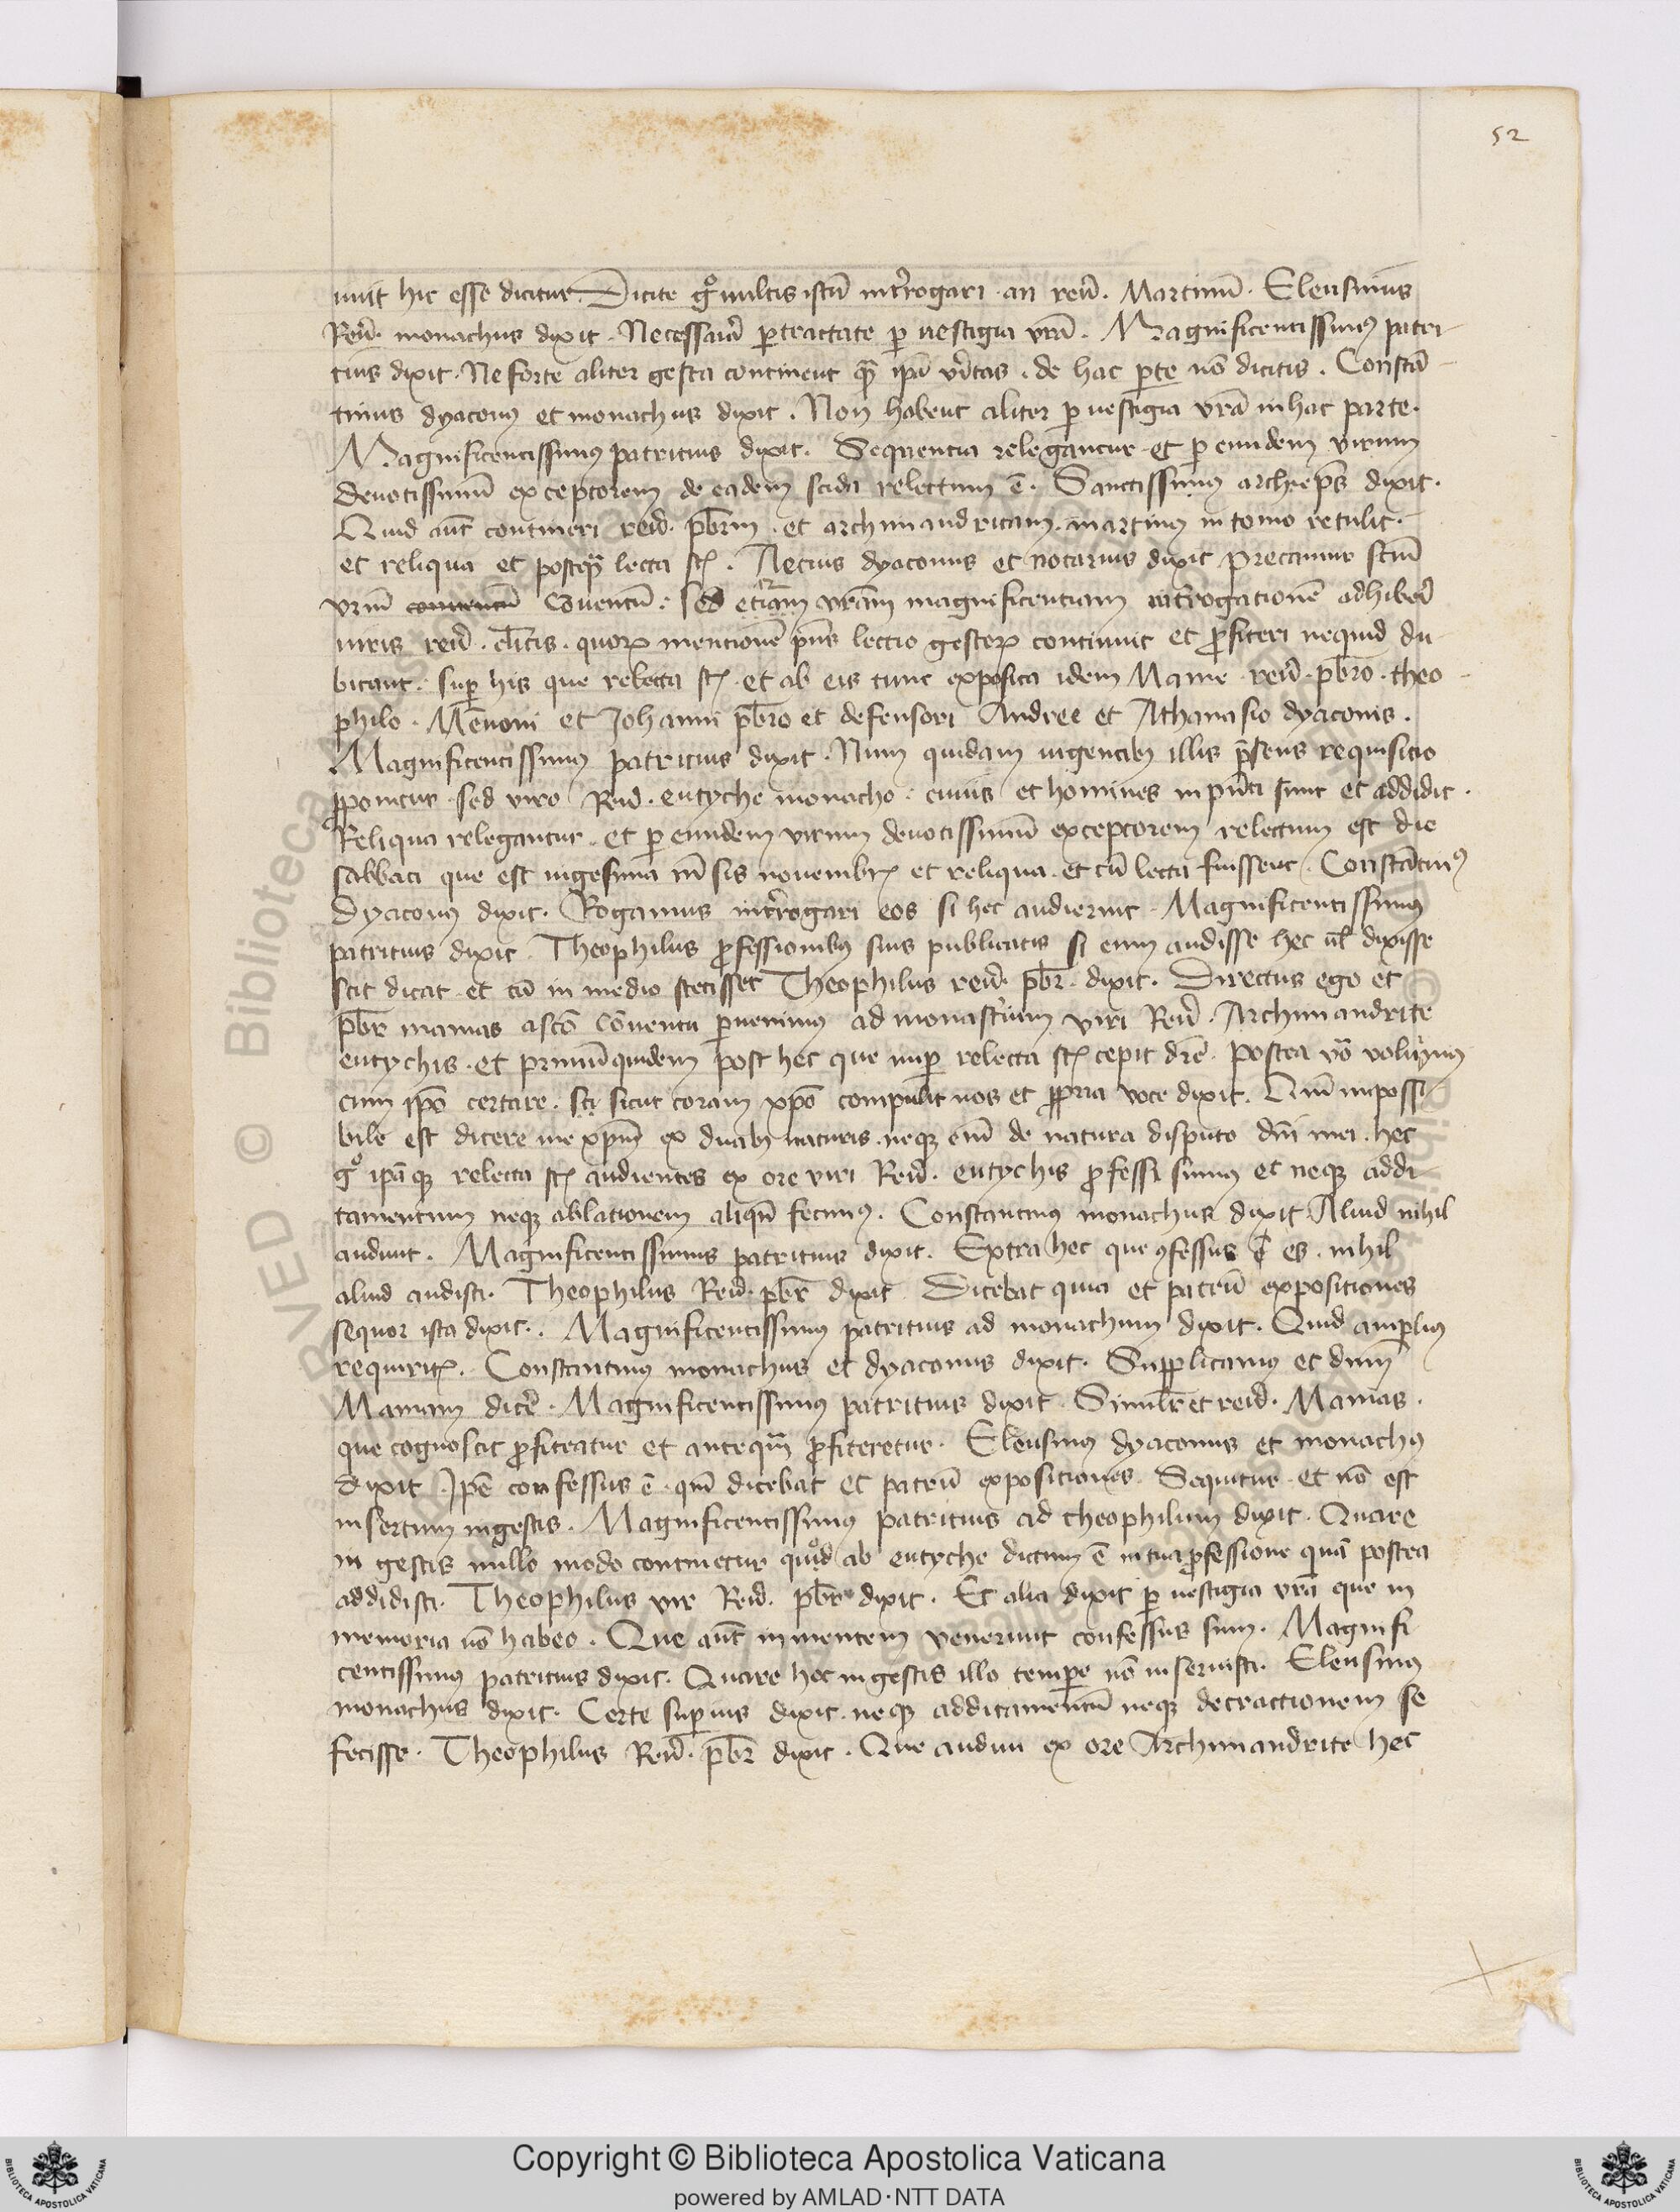 52
nuit hic esse dicitur. Dicite gͦ uultis istū int̄rogari an reuˀ. Martinū. Eleusinius
Reuˀ. monachus dixit. Necessariū ꝑtractate ꝑ uestigia vrā. Magnificentissimꝰ patri
tius dixit. Ne forte aliter gesta continent qͣ ipā vˀitas. de hac ꝑte nō dicitis. Constā
tinus dyaconꝰ et monachus dixit. Non habent aliter ꝑ uestigia vrā in hac parte.
Magnificentissimꝰ patritius dixit. Sequentia relegantur et ꝑ eundem virum
deuotissimū exceptorem de eadem scida relectum ē. Sanctissimꝰ archiep̄s dixit.
Quid aūt contineri reuˀ. pb̄rm et archimandritam. martinꝰ in tomo retulit.
et reliqua et postqͣ lecta st̄. Aetius dyaconus et notarius dixit precamur scm̄
vrm̄ conuentū Cōuentū. sed etiam vrām magnificentiam int̄rogationē adhiberˀ
uiris reuˀ. cl̄icis. quoꝝ mentionē p̄ns lectio gestoꝝ continuit et ꝓfiteri nequid du
bitant. suꝑ his que relecta st̄. et ab eis tunc exposita idem Mame reuˀ. pb̄ro. theo
philo. Mēnoni et Johanni pb̄ro et defensori Andree et Athanasio dyaconis.
Magnificentissimꝰ patritius dixit. Num quidam uigentibꝫ illis p̄sens requisitio
ꝓponitur sed viro Reuˀ. eutyche monacho. cuius et homines inp̄nti sunt et addidit.
Reliqua relegantur. et ꝑ eundem virum deuotissimū exceptorem relectum est die
sabbati que est uigesima m̄sis nouembrꝭ et reliqua. et cū lecta fuissent. Constātinꝰ
dyaconꝰ dixit. Rogamus int̄rogari eos si hec audierint. Magnificentissimꝰ
patritius dixit. Theophilus ꝓfessionibꝫ suis publicatis si eum audisse hec ul̄ dixisse
scit dicat. et cū in medio stetisset Theophilus reuˀ. pb̄r. dixit. Directus ego et
pb̄r mamas a scō cōuentu ꝑuenimus ad monast̄ium viri Reuˀ. Archimandrite
eutychis. et primū quidem post hec que nuꝑ relecta st̄ cepit dr̄e. postea vͦ voluimus
cum ip̄o certare. sʒ sicut coram xp̄o compulit nos et ꝓpria voce dixit. Qm̄ impossi
bile est dicere me xp̄um ex duabꝫ naturis. neqꝫ em̄ de natura disputo dn̄i mei. hec
gͦ ipā qͣ relecta st̄ audientes ex ore viri Reuˀ. eutychis ꝓfessi sumꝰ et neqꝫ addi
tamentum neqꝫ ablationem aliqͣ fecimꝰ. Constantinꝰ monachus dixit Aliud nihil
audiuit. Magnificentissimus patritius dixit. Extra hec que ꝯfessus es. nihil
aliud audisti. Theophilus Reuˀ. pb̄r dixit. Dicebat quia et patrū expositiones
sequor ista dixit. Magnificentissimus patritius ad monachum dixit. Quid amplius
requiritꝭ. Constantinꝰ monachus et dyaconus dixit. Supplicamus et dnm̄
Mamam dicˀe. Magnificentissimꝰ patritius dixit. Simil̄r et reuˀ. Mamas.
que cognoscit ꝓfiteatur et anteqͣ ꝓfiteretur. Eleusinꝰ dyaconus et monachꝰ
dixit. Ip̄e confessus ē. qm̄ dicebat et patrū expositiones Sequitur. et nō est
insertum ingestis. Magnificentissimus patritius ad theophilum dixit. Quare
in gestis nullo modo continetur quod ab eutyche dictum ē in tua ꝓfessione quā postea
addidisti. Theophilus vir Reuˀ. pb̄r dixit. Et alia dixit ꝑ uestigia vrā que in
memoria nō habeo. Que aūt in mentem venerunt confessus sum. Magnifi
centissimus patritius dixit. Quare hec in gestis illo tempe nō inseruisti. Eleusinꝰ
monachus dixit. Certe suꝑius dixit. neqꝫ additamentū neqꝫ detractionem se
fecisse. Theophilus Reuˀ. pb̄r dixit. Que audiui ex ore Archimandrite hec
Copyright © Biblioteca Apostolica Vaticana
powered by AMLAD·NTT DATA